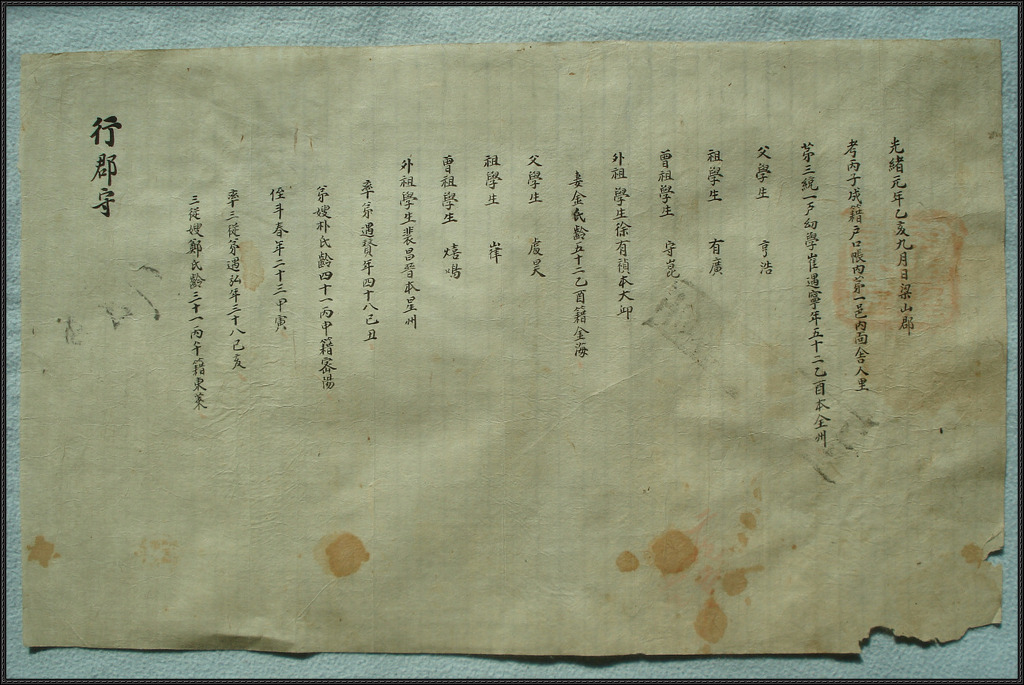 光緖元年乙亥九月日梁山郡
考丙子成籍戶口帳內第一邑內面舍人里
第三統一戶幼學崔遇寧年五十二乙酉本全州
父學生 亨浩
祖學生 有廣
曾祖學生 守崑
外祖學生徐有禎本大邱
妻金氏齡五十二乙酉籍金海
父學生 虔昊
祖學生 嵂
曾祖學生
外祖學生裴昌晉本星州
率弟遇賛年四十八己丑
弟嫂朴氏齡四十一丙申籍密陽
侄斗春年二十三甲寅
率三從弟遇弘年三十八己亥
三從嫂鄭氏齡三十一丙午籍東萊
行郡守